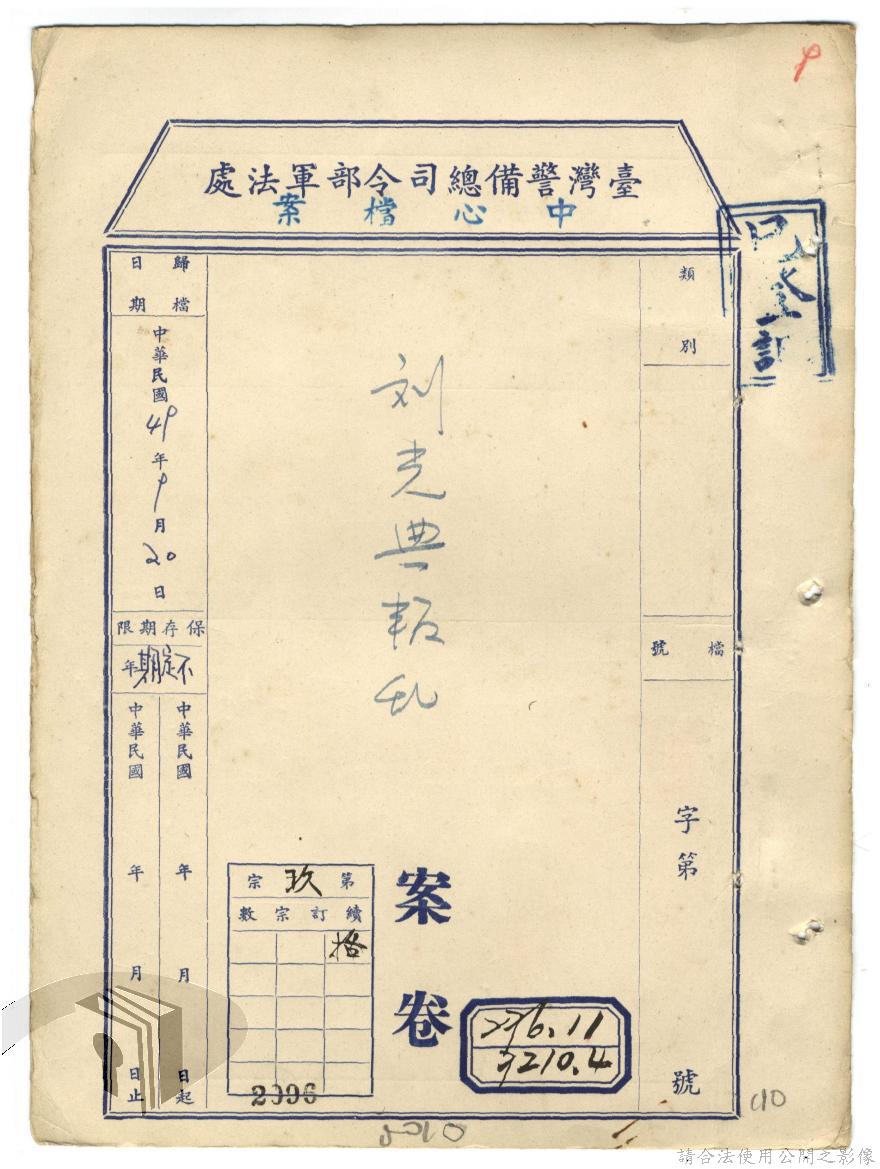 臺灣警備總司令部軍法處
中心檔案
類別
檔號
字第
號
刘光典叛乱
案卷
第玖宗
續訂宗數
拾
2096
歸檔日期
中華民國49年9月20日
保存期限
不定期年
中華民國 年 月 日起
中華民國 年 月 日止
276.11
7210.4
已登記
110
5010
請合法使用公開之影像